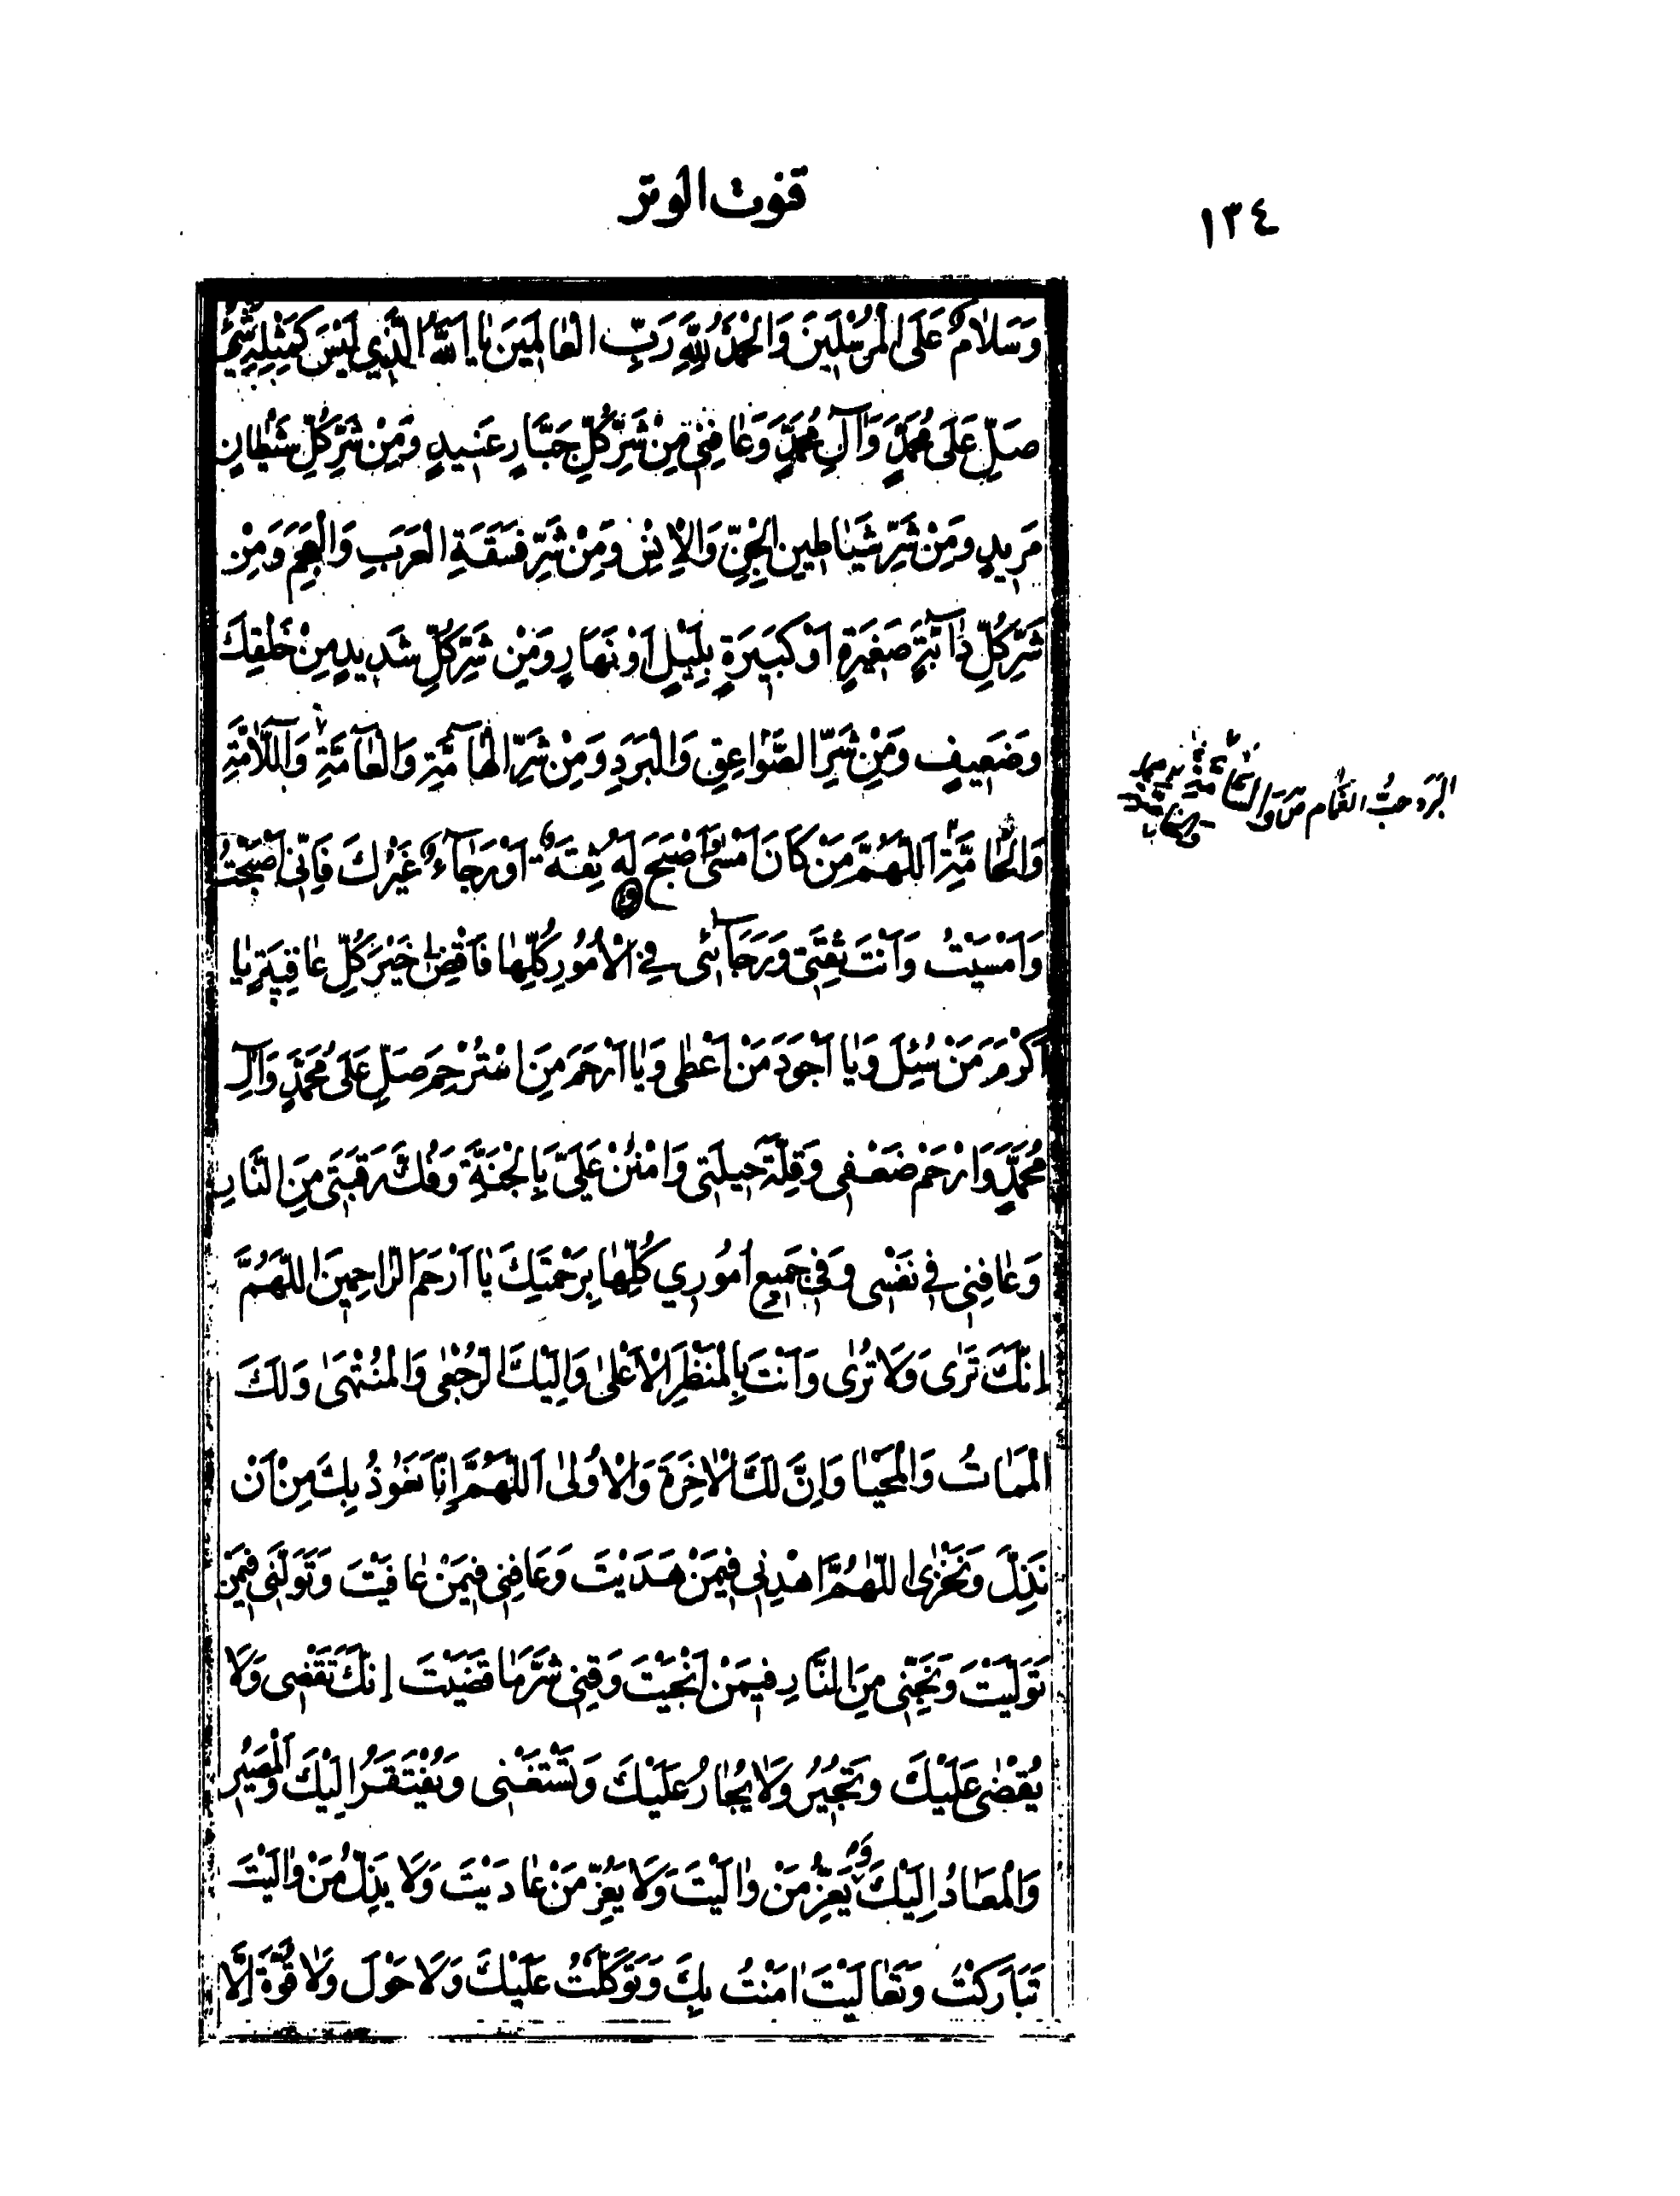 ١٣٤
قنوت الوتر
وَسَلٰامٌ عَلَى الْمُرْسَلِينَ وَالْحَمْدُ لِلّٰهِ رَبِّ الْعٰالَمِينَ يٰا اَللّٰهُ الَّذِي لَيْسَ كَمِثْلِهِ شَيْءٌ
صَلِّ عَلَى مُحَمَّدٍ وَآلِ مُحَمَّدٍ وَعٰافِنِي مِنْ شَرِّ كُلِّ جَبَّارٍ عَنِيدٍ وَمِنْ شَرِّ كُلِّ شَيْطٰانٍ
مَرِيدٍ وَمِنْ شَرِّ شَيٰاطِينِ الْجِنِّ وَالْإِنْسِ وَمِنْ شَرِّ فَسَقَةِ الْعَرَبِ وَالْعَجَمِ وَمِنْ
شَرِّ كُلِّ دٰآبَّةٍ صَغِيرَةٍ اَوْ كَبِيرَةٍ بِلَيْلٍ اَوْ نَهَارٍ وَمِنْ شَرِّ كُلِّ شَدِيدٍ مِنْ خَلْقِكَ
وَضَعِيفٍ وَمِنْ شَرِّ الصَّوٰاعِقِ وَالْبَرَدِ وَمِنْ شَرِّ الْهٰآمَّةِ وَالْعٰآمَّةِ وَاَللّٰامَّةِ
وَالْخٰامَّةِ اَللّٰهُمَّ مَنْ كَانَ اَمْسٰى وَاَصْبَحَ لَهُ ثِقَةٌ اَوْ رَجٰآءٌ غَيْرُكَ فَاِنّي اَصْبَحْتُ
وَاَمْسَيْتُ وَاَنْتَ ثِقَتِي وَرَجَآئِي فِي الْاُمُورِ كُلِّهٰا فَاقْضِ لِي خَيْرَ كُلِّ عٰافِيَةٍ يٰا
اَكْرَمَ مَنْ سُئِلَ وَيٰا اَجْوَدَ مَنْ اَعْطٰى وَيٰا اَرْحَمَ مَنِ اسْتُرْحِمَ صَلِّ عَلَى مُحَمَّدٍ وَآلِ
مُحَمَّدٍ وَارْحَمْ ضَعْفِي وَقِلَّةَ حِيلَتِي وَامْنُنْ عَلَيَّ بِالْجَنَّةِ وَفُكَّ رَقَبَتِي مِنَ النَّارِ
وَعٰافِنِي فِي نَفْسِي وَفِي جَمِيعِ اُمُورِي كُلِّهٰا بِرَحْمَتِكَ يٰا اَرْحَمَ الرّٰاحِمِينَ اللّٰهُمَّ
اِنَّكَ تَرٰى وَلَا تُرٰى وَاَنْتَ بِالْمَنْظَرِ الْاَعْلٰى وَاِلَيْكَ الرُّجْعٰى وَالْمُنْتَهٰى وَلَكَ
الْمَمٰاتُ وَالْمَحْيٰا وَاِنَّ لَكَ الْاٰخِرَةَ وَالْاُولٰى اَللّٰهُمَّ اِنَّا نَعُوذُ بِكَ مِنْ اَنْ
نَذِلَّ وَنَخْزٰى اللّٰهُمَّ اهْدِنِي فِيمَنْ هَدَيْتَ وَعَافِنِي فِيمَنْ عٰافَيْتَ وَتَوَلَّنِي فِيمَنْ
تَوَلَّيْتَ وَنَجِّنِي مِنَ النَّارِ فِيمَنْ اَنْجَيْتَ وَقِنِي شَرَّ مٰا قَضَيْتَ اِنَّكَ تَقْضِي وَلَا
يُقْضٰى عَلَيْكَ وَتُجِيرُ وَلَا يُجٰارُ عَلَيْكَ وَتَسْتَغْنِي وَيُفْتَقَرُ اِلَيْكَ وَالْمَصِيرُ
وَالْمَعَادُ اِلَيْكَ وَيَعِزُّ مَنْ وٰالَيْتَ وَلَا يَعِزُّ مَنْ عٰادَيْتَ وَلَا يَذِلُّ مَنْ وٰالَيْتَ
تَبَارَكْتَ وَتَعٰالَيْتَ اٰمَنْتُ بِكَ وَتَوَكَّلْتُ عَلَيْكَ وَلَا حَوْلَ وَلَا قُوَّةَ اِلَّا
البَرَد حبُّ الغَمام